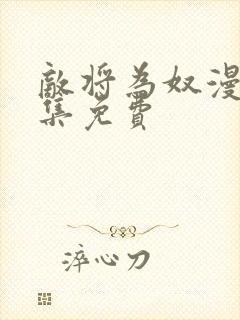 敵将為奴漫
集免費
淬心刀